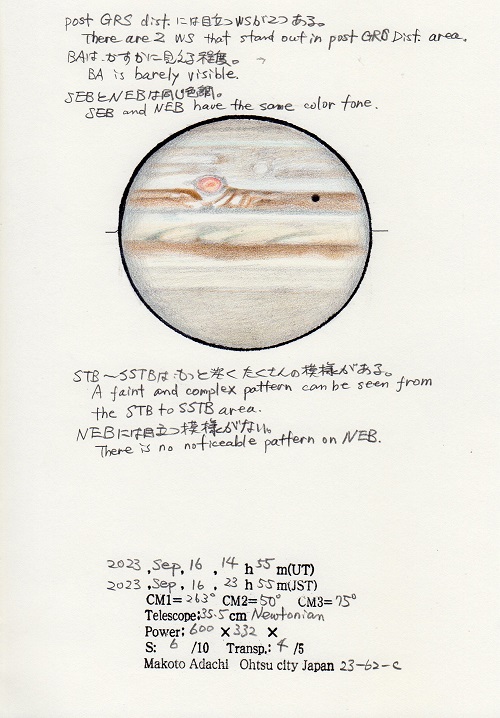 post GRS dist. には目立つWSが2つある。
There are 2 WS that stand out in post GRS Dist. area.
BAは かすかに見える程度。
BA is barely visible.
SEBとNEBは同じ色調。
SEB and NEB have the same color tone.
STB～SSTBは もっと淡く たくさんの模様がある。
A faint and complex pattern can be seen from
the STB to SSTB area.
NEBには目立つ模様がない。
There is no noticeable pattern on NEB.
2023 , Sep, 16 , 14 h 55 m(UT)
2023 , Sep, 16 , 23 h 55 m(JST)
CM1= 263° CM2= 50° CM3= 75°
Telescope: 35.5 cm Newtonian
Power: 600 × 332 ×
S: 6 /10 Transp.: 4 /5
Makoto Adachi Ohtsu city Japan 23-62-c